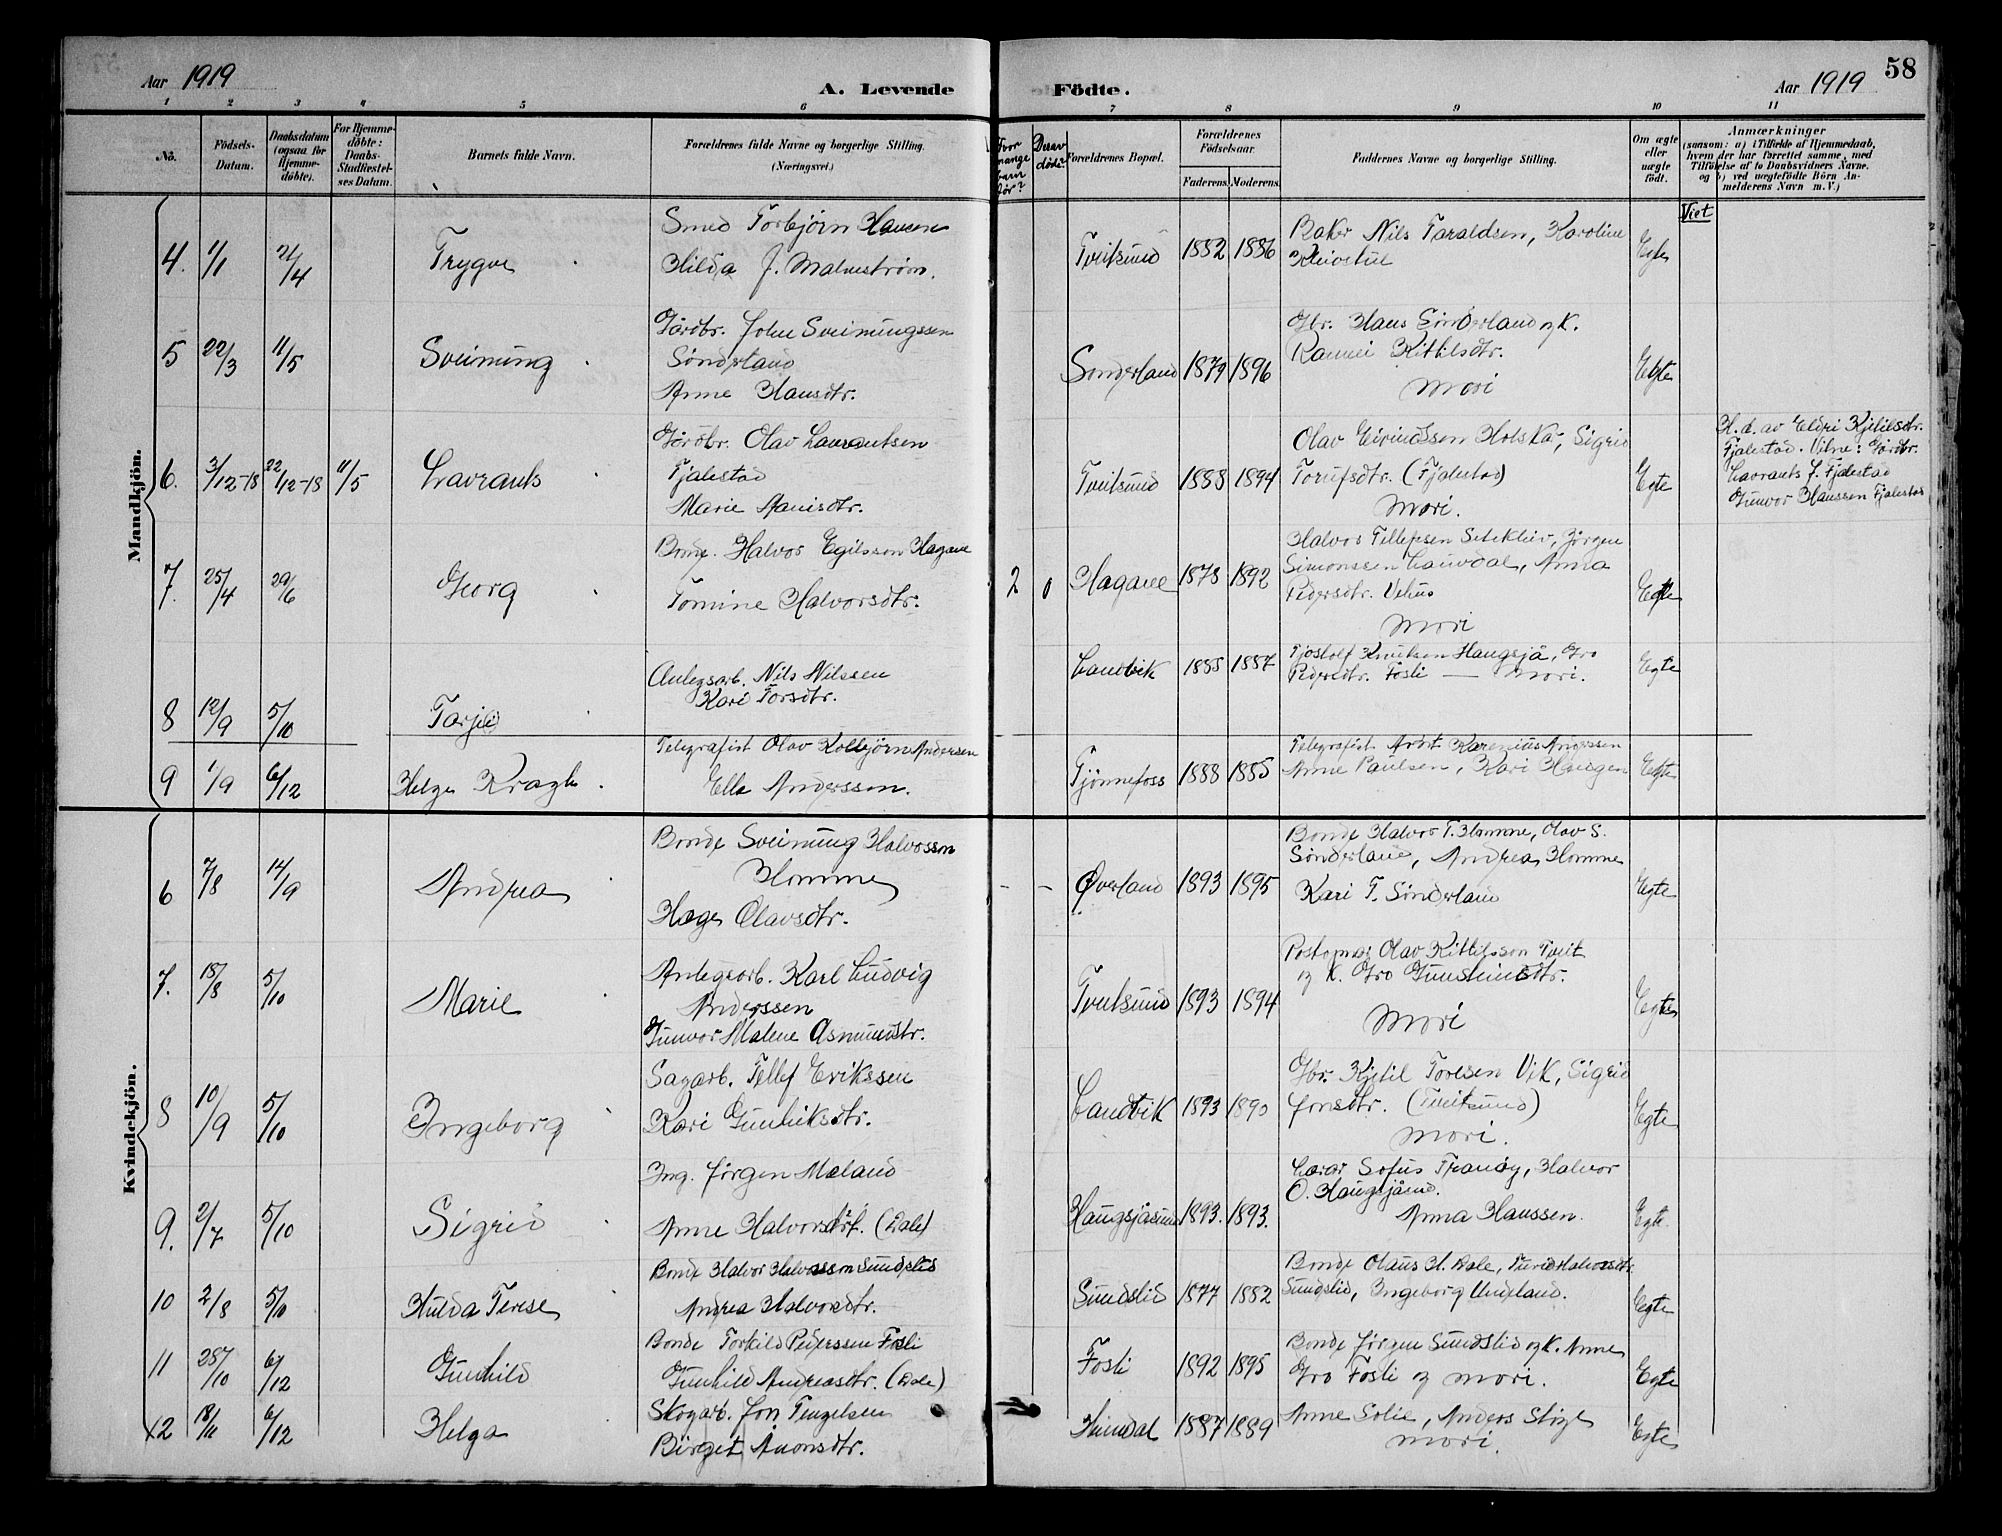 58
Aar 1919
A. Levende
Födte.
Aar 1919
1 2 3 4 5 6 7 8 9 10 11
No.
Födsels-
Datum.
Daabsdatum
(ogsaa for
Hjemme-
döbte).
For Hjemme-
döbte:
Daabs-
Stadfæstel-
ses Datum.
Barnets fulde Navn.
Forældrenes fulde Navne og borgerlige Stilling.
(Næringsvei.)
Hvor
mange
barn
før?
Derav
døde?
Forældrenes Bopæl.
Forældrenes
Födselsaar.
Faderens. Moderens.
Faddernes Navne og borgerlige Stilling.
Om ægte
eller
uægte
født.
Anmærkninger
(saasom: a) i Tilfælde af Hjemmedaab,
hvem der har forrettet samme, med
Tilföielse af to Daabsvidners Navne.
og b) ved uægtefödte Börn An-
melderens Navn m. V.)
Mandkjön.
4. 1/1 21/4 Trygve
Smed Torbjørn Hansen
Hilda J. Malmström.
Tveitsund 1882 1886
Baker Nils Taraldsen, Karoline
Egte
5 22/3 11/5 Sveinung
Gårdbr. John Sveinungssen
Sønderland
Anne Hansdtr.
Sønderland 1879 1896
Gbr. Hans Sønderland og K.
Rannei Kittilsdtr.
Mori
Egte
6. 3/12-18 22/12-18 11/5 Lavrants
Gårdbr. Olav Lavrantsen
Fjalestad
Marie
Tveitsund 1888 1894
Olav Eivindssen Holskar, Sigrid
(Fjalestad)
Mori.
Egte
H.d. av Eldri Kjetilsdtr.
Fjalestad. Vitne: Gårdbr.
Lavrants J. Fjalestad
Gunvor Hanssen Fjalestad
7. 25/4 29/6 Georg
Bonde. Halvor Egilsson Hagane
Tomine Halvorsdtr.
2 0 Hagane 1878 1892
Halvor Tellefsen Seteklev, Jørgen
Simonssen Lauvdal, Anna
Pedersdtr. Vehus
Mori
Egte
8 12/9 5/10 Tarjei
Anlegsarb. Nils Nilssen
Kari Torsdtr.
Landvik 1885 1887
Tjostolf Knutsen Haugsjå, Gro
Pedersdtr. Fosli — Mori.
Egte
9 1/9 6/12 Helge Kragh
Telegrafist Olav Kolbjørn Andersen
Ella Anderssen.
Tjønnefoss 1888 1885
Telegrafist Arvid Karenius Anderssen
Anne Paulsen, Kari Haugen
Egte
Kvindekjön.
6 7/8 14/9 Andrea
Bonde Sveinung Halvorsson
Homme
Hæge Olavsdtr.
- - Øverland 1893 1895
Bonde Halvor T. Homme, Olav S.
Sønderland, Andrea Homme
Kari T. Sønderland
Egte
7. 18/8 5/10 Marie
Anlegsarb. Karl Ludvig
Anderssen
Gunvor Malene Asmundsdtr.
Tveitsund 1893 1894
Postopner Olav Kittilsson Tveit
og K. Gro Gunsteinsdtr.
Mori
Egte
8 10/9 5/10 Ingeborg
Sagarb. Tellef Erikssen
Kari Gunleiksdtr.
Landvik 1893 1890
Gbr. Kjetil Toresen Vik, Sigrid
Jonsdtr. (Tveitsund)
Mori.
Egte
9. 2/7 5/10 Sigrid
Ing. Jørgen Meland
Anne Halvorsdtr. (Dale)
Haugsjåsund 1893. 1893.
Lærer Sofus Tranøy, Halvor
O. Haugsjåsund.
Anna Hanssen.
Egte
10 2/8 5/10 Hulda Terese
Bonde Halvor Halvorsson Sundslid
Andrea Halvorsdtr.
Sundslid 1877 1882
Bonde Olaus H. Dale, Turid Halvorsdtr.
Sundslid, Ingeborg Undeland.
Egte
11 28/10 6/12 Gunhild
Bonde Torkild Pederssen Fosli
Gunhild Andreasdtr. (Dale)
Fosli 1892 1895
Bonde Jørgen Sundslid og K. Anne
Gro Fosli og mori.
Egte
12 18/11 6/12 Helga
Skogarb. Jon Tengelsen
Birgit Aaonsdtr.
1887 1889
Anne Solie, Anders
mori.
Egte